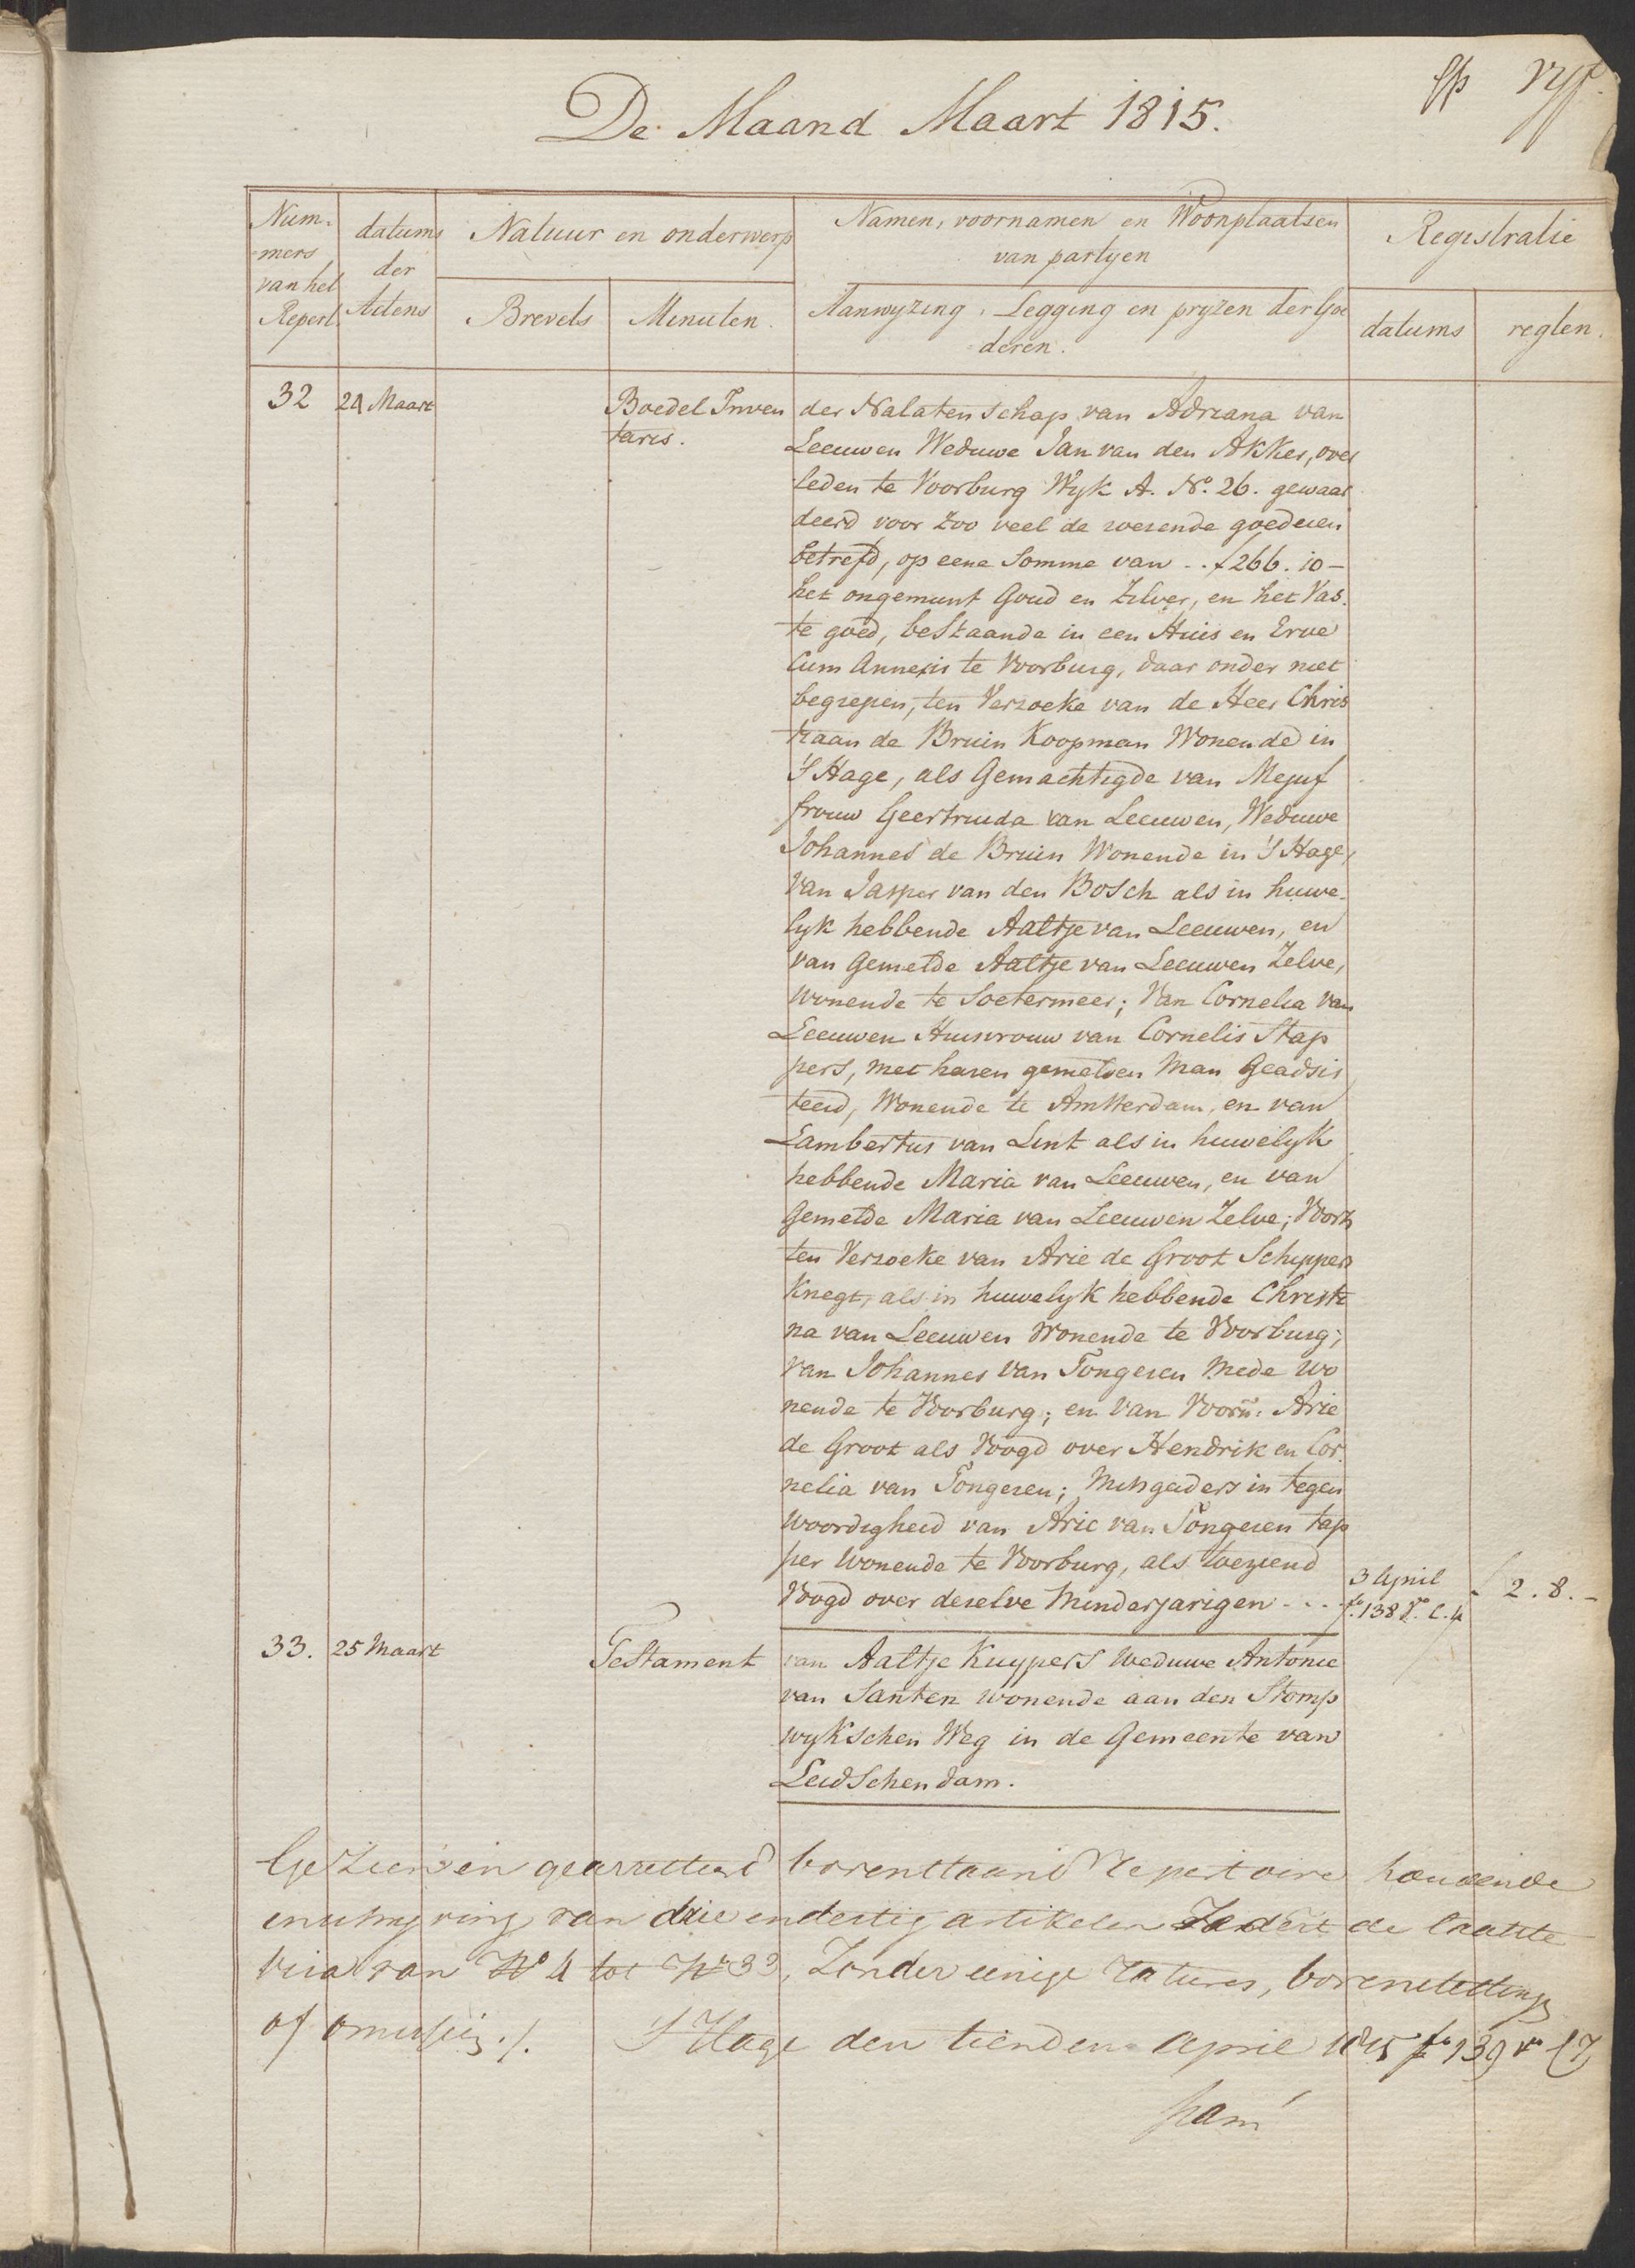 vyf
De Maand Maart 1815.
Num-
mers
van het
Repert.
datums
der
Actens
Natuur en onderwerp
Brevets
Minuten.
Namen, voornamen en Woonplaatsen
van partyen
Aanwyzing, Legging en pryzen der Goe
deren.
Registratie
datums
regten.
32
24 Maart
Boedel Inven
taris.
der Nalatenschap van Adriana van
Leeuwen Weduwe Jan van den Akker, over
leden te Voorburg Wyk A. No. 26. gewaar
deerd voor zoo veel de roerende goederen
betrefd, op eene Somme van .. f 266. 10 –
het ongemunt Goud en Zilver, en het Vas-
te goed, bestaande in een Huis en Erve
Cum Annexis te Voorburg, daar onder niet
begrepen, ten Verzoeke van de Heer Chris
tiaan de Bruin Koopman Wonende in
'S Hage, als Gemachtigde van Mejuf
frouw Geertruida van Leeuwen, Weduwe
Johannes de Bruin Wonende in 'S Hage,
Van Jasper van den Bosch als in huwe-
lyk hebbende Aaltje van Leeuwen, en
van Gemelde Aaltje van Leeuwen Zelve,
wonende te Soetermeer; Van Cornelia van
Leeuwen Huisvrouw van Cornelis Stap
pers, met haren gemelden Man Geadsis
teerd, Wonende te Amsterdam, en van
Lambertus van Lint als in huwelyk
hebbende Maria van Leeuwen, en van
Gemelde Maria van Leeuwen Zelve; Voorts
ten Verzoeke van Arie de Groot Schippers
Knegt, als in huwelyk hebbende Christi
na van Leeuwen Wonende te Voorburg;
Van Johannes van Tongeren Mede wo
nende te Voorburg; en Van Voorn: Arie
de Groot als Voogd over Hendrik en Cor-
nelia van Tongeren; Mitsgaders in tegen
woordigheid van Arie van Tongeren tap
per wonende te Voorburg, als toeziend
Voogd over deselve Minderjarigen - . . .
3 April
fo. 138 Vo. C. 4
f 2. 8. –
33.
25 Maart
Testament
van Aaltje Kuypers Weduwe Antonie
van Santen wonende aan den Stomp
wykschen Weg in de Gemeente van
Leidschendam.
Gezien en gearresteerd bovenstaand Repertoire houdende
van drie en dertig artikelen Zedert de laatste
visa van No 4 tot No 33, Zonder eenige ratures,
of omissie ./. S Hage den tienden April 1815 fo 139 vo